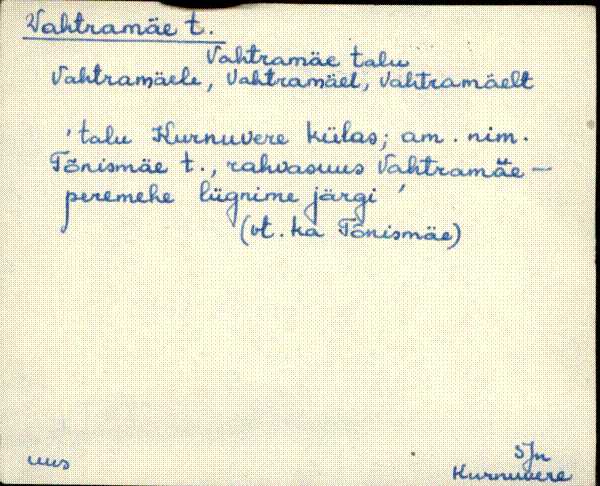 Vahtramäe t.
Vahtramäe talu
Vahtramäele, Vahtramäel, Vahtramäelt
'talu Kurnuvere külas; am. nim.
Tõnismäe t., rahvasuus Vahtramäe -
peremehe liignime järgi'
(vt. ka Tõnismäe)
SJn
uus
Kurnuvere